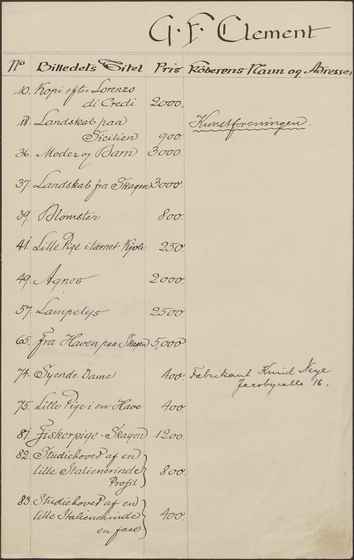 G. F. Clement
No Billedets Titel Pris Køberens Navn og Adresse
10. Kopi efter Lorenzo
di Credi 2000.
11. Landskab paa
Sicilien 900. Kunstforeningen
36. Moder og Barn 3000
37. Landskab fra Skagen 3000
39. Blomster 800.
41. Lille Pige i ternet Kjole 250
49. Agnes 2000
57. Lampelys 2500
65. Fra Haven paa Skagen 5,000
74. Syende Dame 400. Fabrikant Knud
Jacobysalle 16.
75. Lille Pige i en Have 400
81. Fiskerpige - Skagen 1200
82. Studiehoved af en
lille Italienerinde
Profil 800.
83. Studiehoved af en
lille Italienerinde
en face 400.